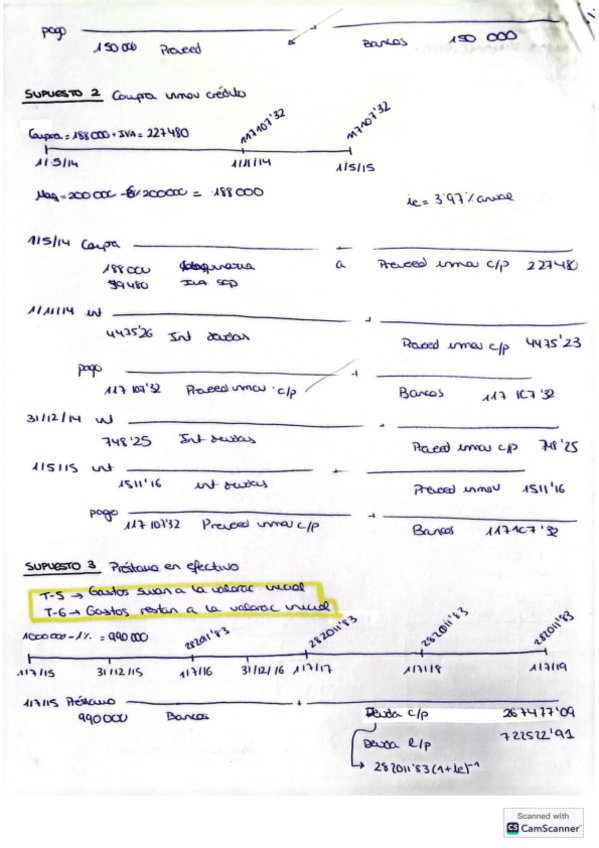 pago
150 000 Proveed Bancos 150 000
SUPUESTO 2 Compra inmov crédito
Compra = 188 000 + IVA = 227 480 117107'32 117107'32
1/5/14 1/11/14 1/5/15
Maq = 200 000 - 6% 200000 = 188 000 ie = 3'97% anual
1/5/14 Compra
188 000 Maquinaria a Proveed inmov c/p 227480
39480 IVA sop
1/11/14 int
4475'26 Int deudas Proveed inmov c/p 4475'23
pago
117 107'32 Proveed inmov c/p Bancos 117 107'32
31/12/14 int
748'25 Int deudas Proveed inmov c/p 748'25
1/5/15 int
1511'16 int deudas Proveed inmov 1511'16
pago
117 107'32 Proveed inmov c/p Bancos 117 107'32
SUPUESTO 3 Préstamo en efectivo
T-5 → Gastos suman a la valorac. inicial
T-6 → Gastos restan a la valorac inicial
1000000 - 1% = 990 000 282011'83 282011'83 282011'83 282011'83
1/7/15 31/12/15 1/7/16 31/12/16 1/7/17 1/7/18 1/7/19
1/7/15 Préstamo
990000 Bancos Deuda c/p 267477'09
Deuda l/p 722522'91
→ 282011'83 (1+ie)⁻¹
Scanned with
CS CamScanner